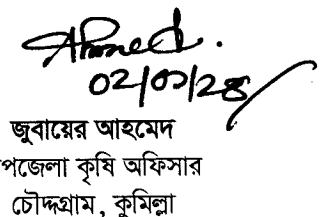 Ahmed.
জুবায়ের আহমেদ
পজেলা কৃষি অফিসার
চৌদ্দগ্রাম, কুমিল্লা